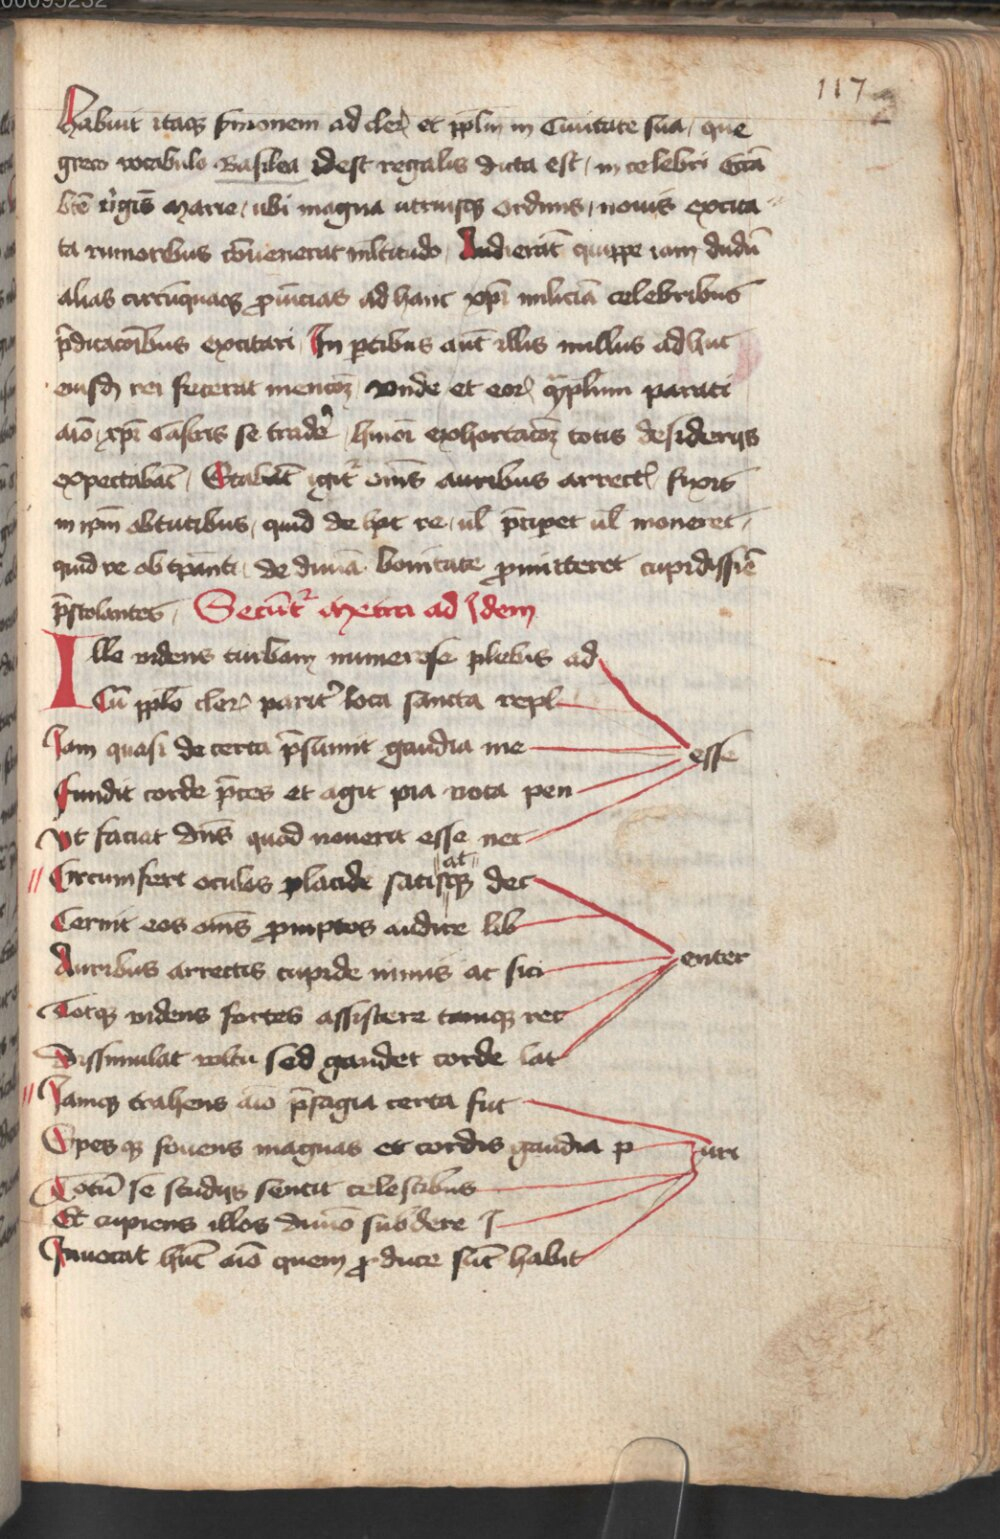 00095232
117
habuit itaq̃ ẜmonem ad cleꝝ et ppl̄m in Ciuitate sua, que
greco vocabulo Basilea idest regalis dicta est, in celebri Ecc̄ia
btē v̓gīs Marie, ubi magna utriusq̃ ordinis, nouis excita
ta rumoribus cōuenerat ml̄titudo, Audierāt quippe iam dudū
alias circūquaq̃ ꝓuīcias ad hanc xp̄i miliciā celebribus
p̄dicacōibus excitari, In ꝑtibus aūt illis nullus adhuc
eiusdꝫ rei fecerat mencōꝫ, Vnde et eoꝝ q̄plurimi parati
aīo xp̄i Castris se tradeᷣ, hmōi exhortacōꝫ totis desiderijs
expectabāt, Stabāt igitᷣ om̄s auribus arrectꝭ, fixis
in ip̄m obtutibus, quid de hac re, ul̄ p̄ciꝑet ul̄ moneret,
quid ve ob tꝑanti, de diuīa bonitate ꝓmitteret cupidissīe
p̄stolantes, Secūtᷣ Metra ad Idem
Ille videns turbam numerose plebis ad
Cū pplo cleꝝ paritᷣ loca sancta repl
Iam quasi de certa p̄sumit gaudia me
esse
Fundit corde p̄ces et agit pia vota pen
Vt faciat dn̄s quod nouerit esse nec
at
Circumfert oculos placide satisq̃ dec
Cernit eos om̄s ꝓmptos audire lib
enter
Auribus arrectis cupide nimis ac sici
Totq̃ videns fortes assistere tamq̃ rec
Dissimulat voltu sed gaudet corde lat
Iamq̃ trahens aīo p̄sagia certa fut
Spes q̃ fouens magnas et cordis gaudia p
uri
Totū se studijs sentit celestibus
Et cupiens illos diuīo subdere I
Inuocat hūc aīo quem ꝓ duce sūt habit